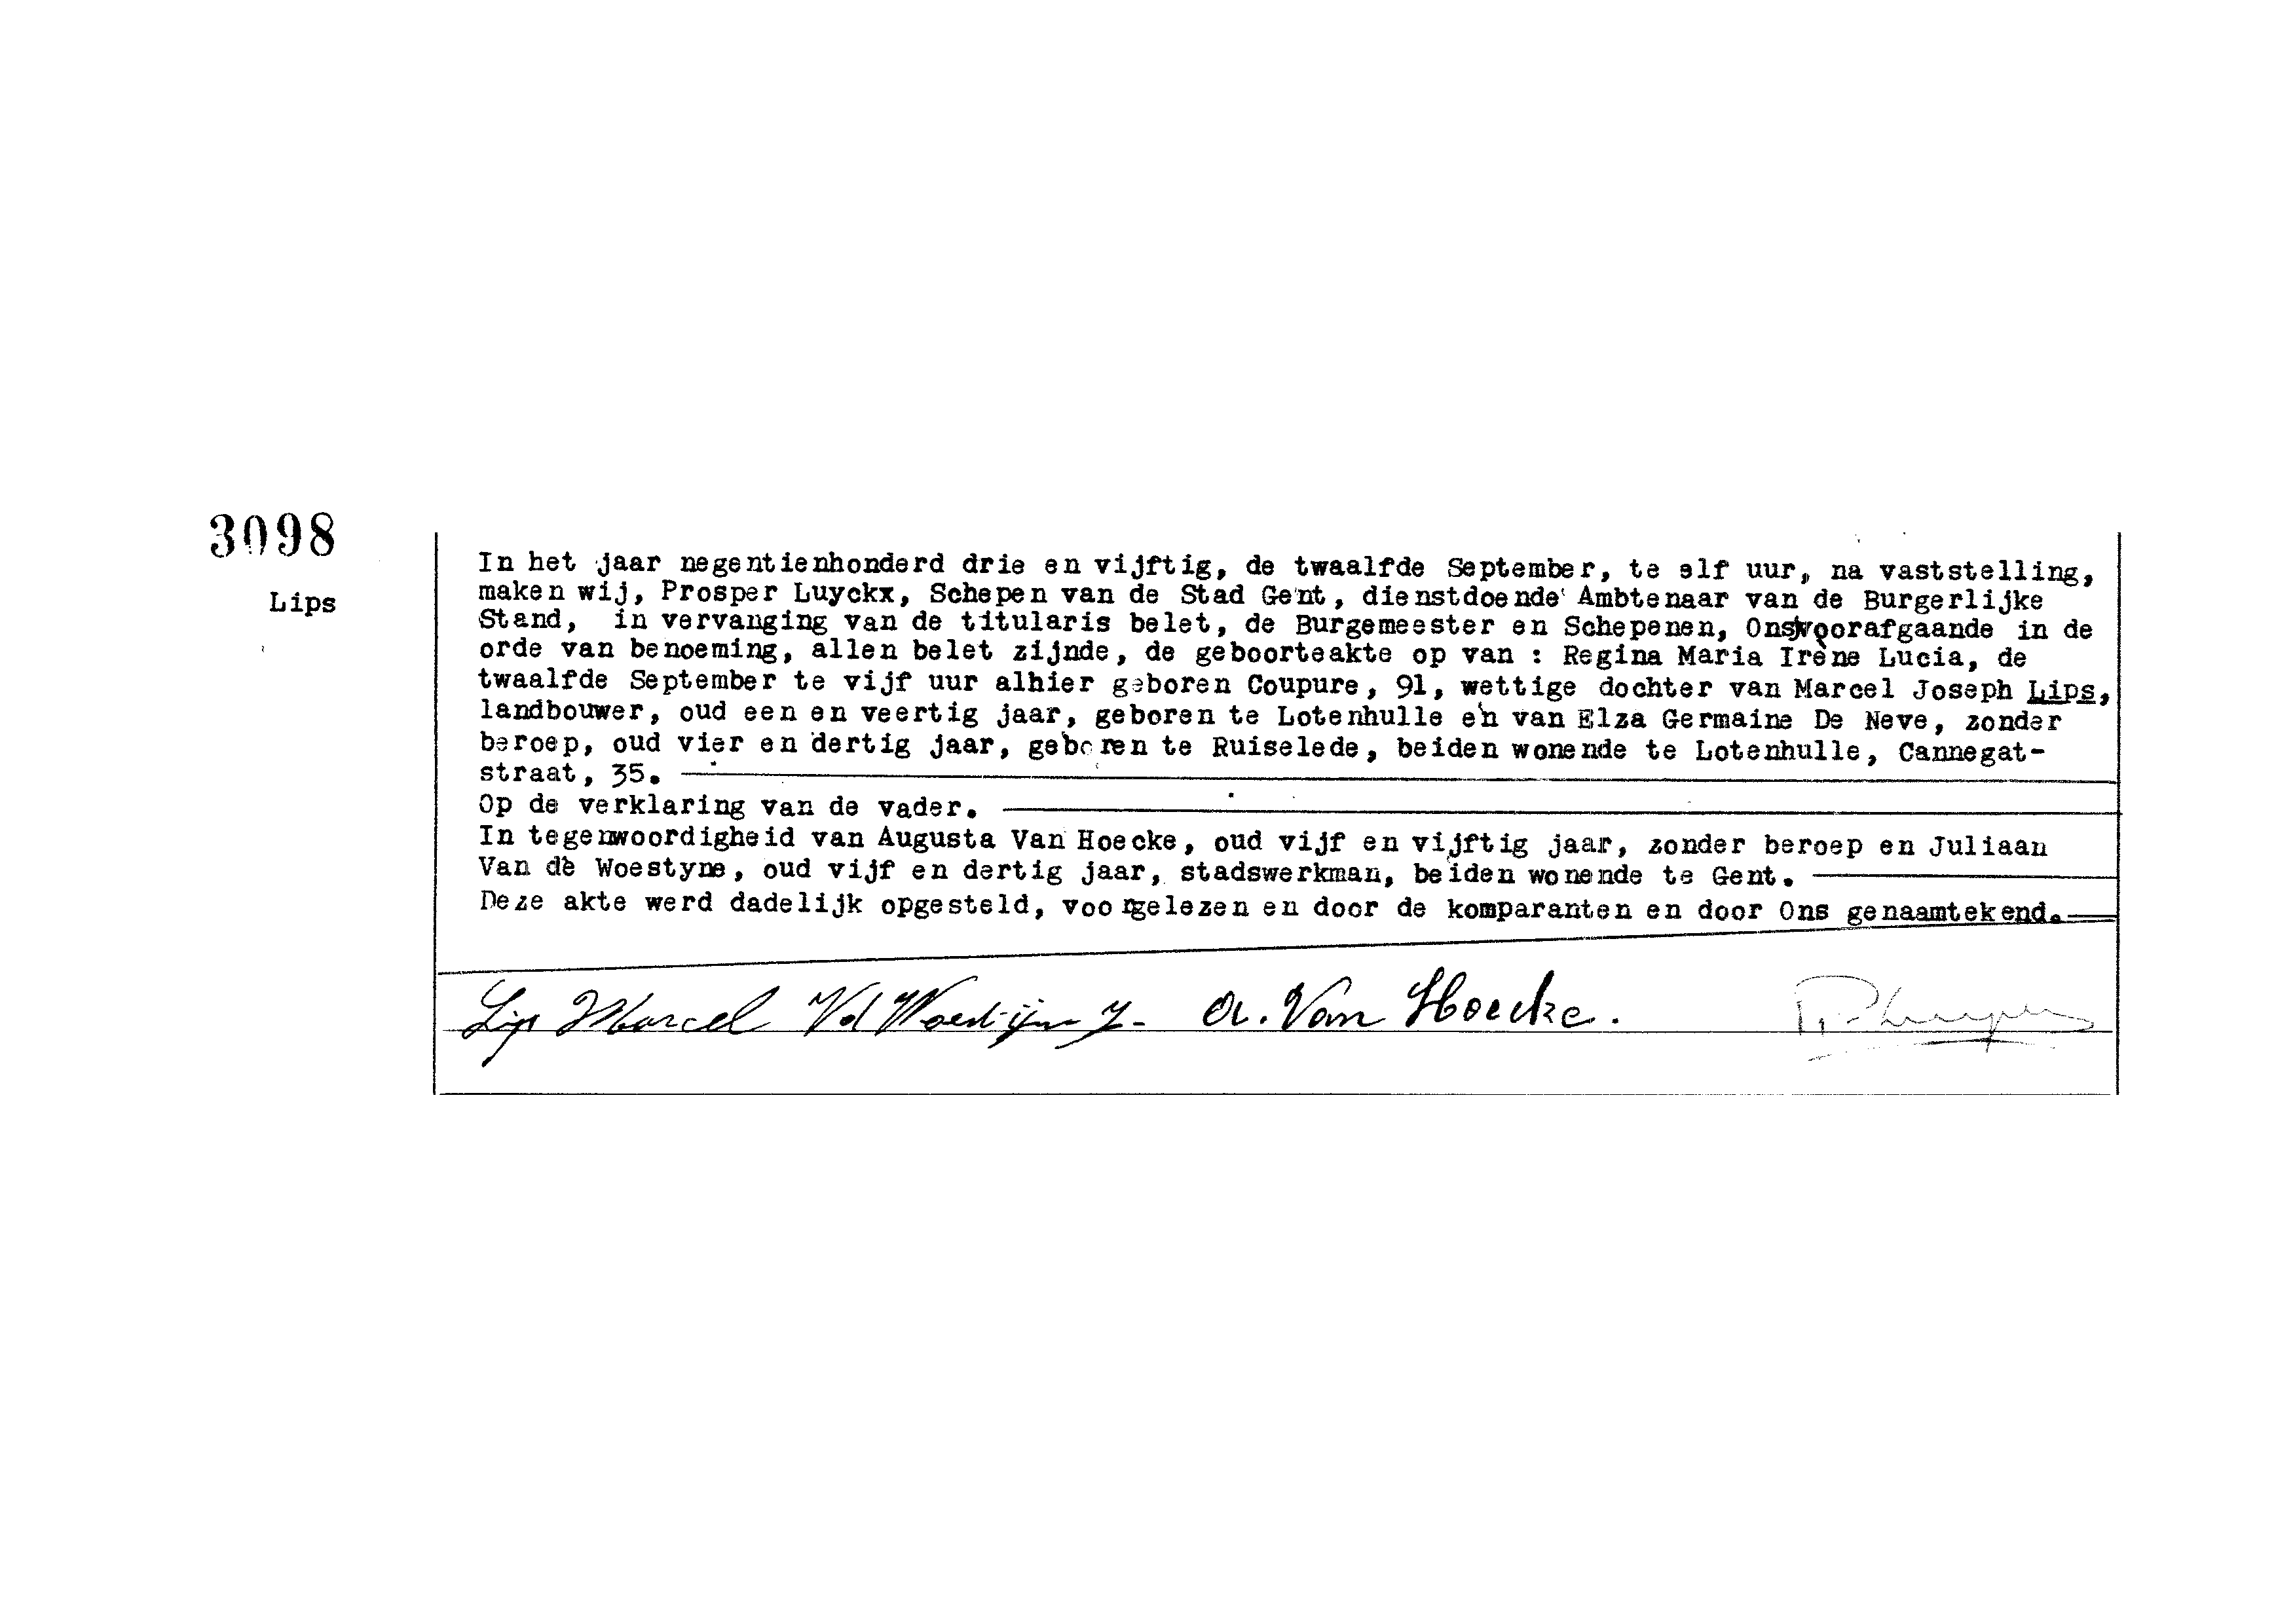 3098
Lips
In het jaar negentienhonderd drie en vijftig, de twaalfde September, te elf uur, na vaststelling,
maken wij, Prosper Luyckx, Schepen van de Stad Gent, dienstdoende Ambtenaar van de Burgerlijke
Stand, in vervanging van de titularis belet, de Burgemeester en Schepenen, Ons voorafgaande in de
orde van benoeming, allen belet zijnde, de geboorteakte op van : Regina Maria Irène Lucia, de
twaalfde September te vijf uur alhier geboren Coupure, 91, wettige dochter van Marcel Joseph Lips,
landbouwer, oud een en veertig jaar, geboren te Lotenhulle en van Elza Germaine De Neve, zonder
beroep, oud vier en dertig jaar, geboren te Ruiselede, beiden wonende te Lotenhulle, Cannegat-
straat, 35.
Op de verklaring van de vader.
In tegenwoordigheid van Augusta Van Hoecke, oud vijf en vijftig jaar, zonder beroep en Juliaan
Van de Woestyne, oud vijf en dertig jaar, stadswerkman, beiden wonende te Gent.
Deze akte werd dadelijk opgesteld, voorgelezen en door de komparanten en door Ons genaamtekend.
Lips Marcel Vd Woestijne J. A. Van Hoecke.